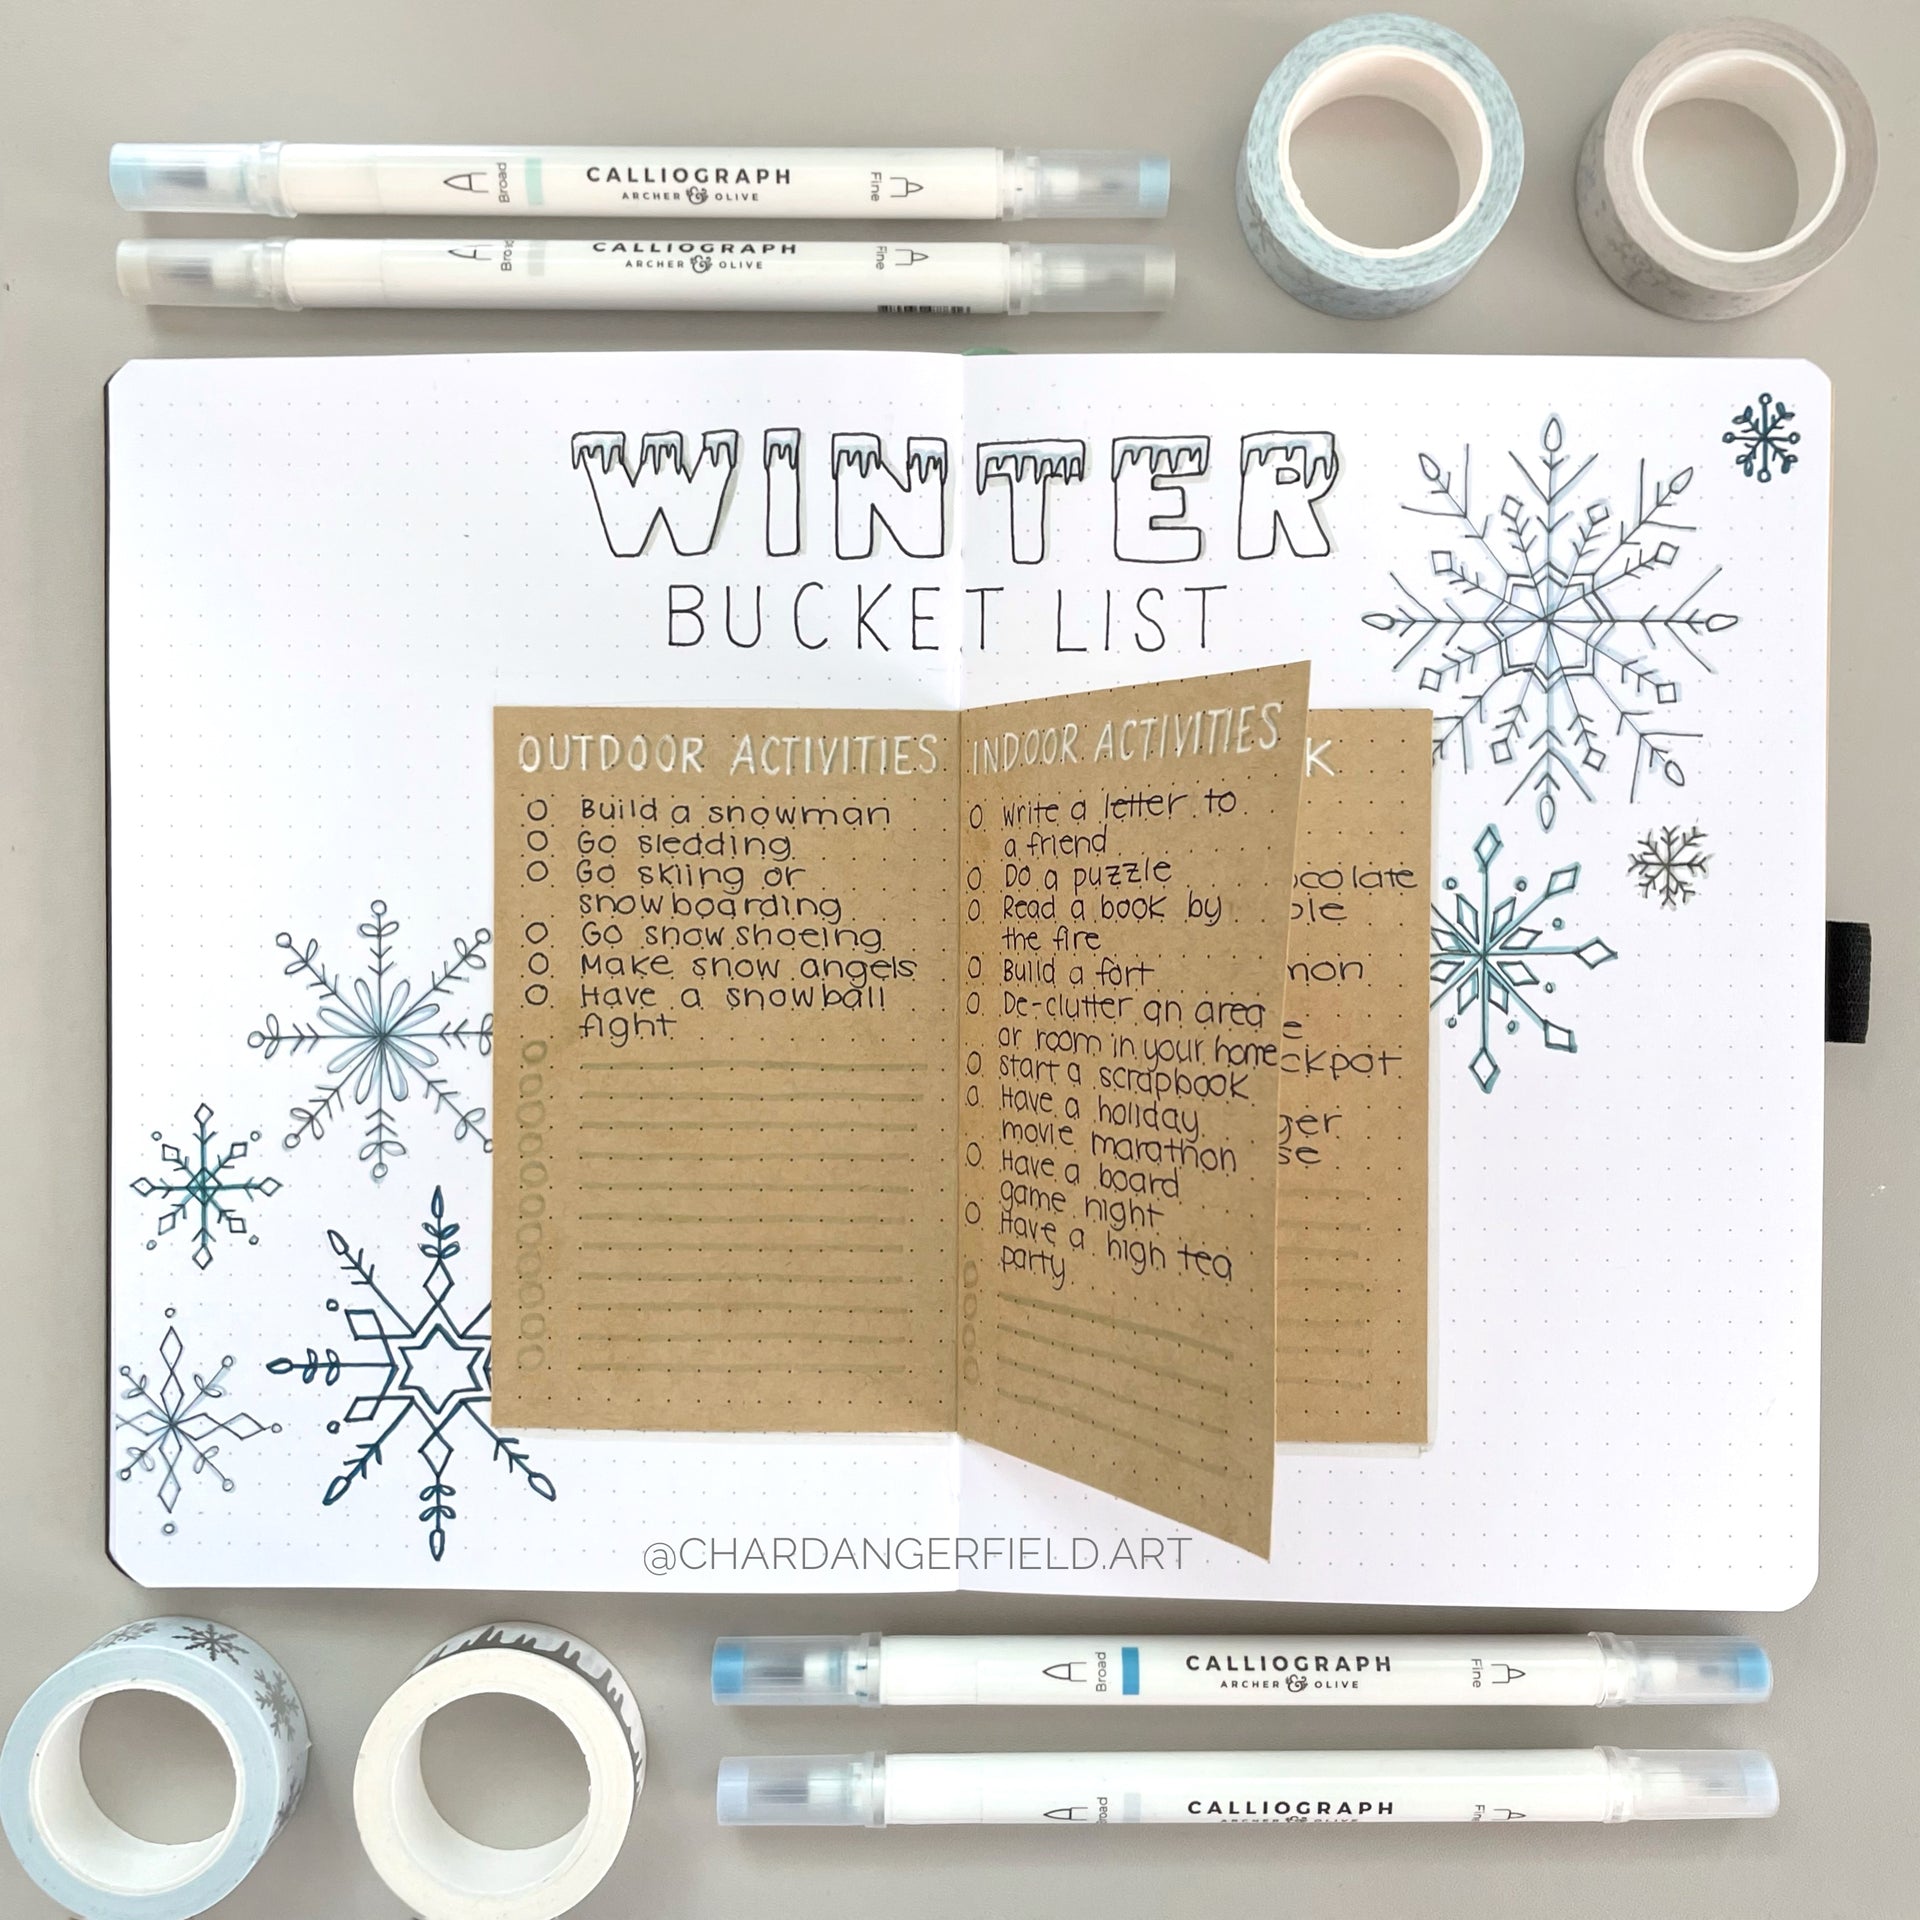 Broad CALLIOGRAPH Fine
ARCHER & OLIVE
CALLIOGRAPH Fine
ARCHER & OLIVE
WINTER
BUCKET LIST
OUTDOOR ACTIVITIES
Build a snowman
Go sledding
Go skiing or
snowboarding
Go snow shoeing
Make snow angels
Have a snowball
fight
INDOOR ACTIVITIES
Write a letter to
a friend
Do a puzzle
Read a book by
the fire
Build a fort
De-clutter an area
or room in your home
Start a scrapbook
Have a holiday
movie marathon
Have a board
game night
Have a high tea
party
K
@CHARDANGERFIELD.ART
Broad CALLIOGRAPH Fine
ARCHER & OLIVE
CALLIOGRAPH